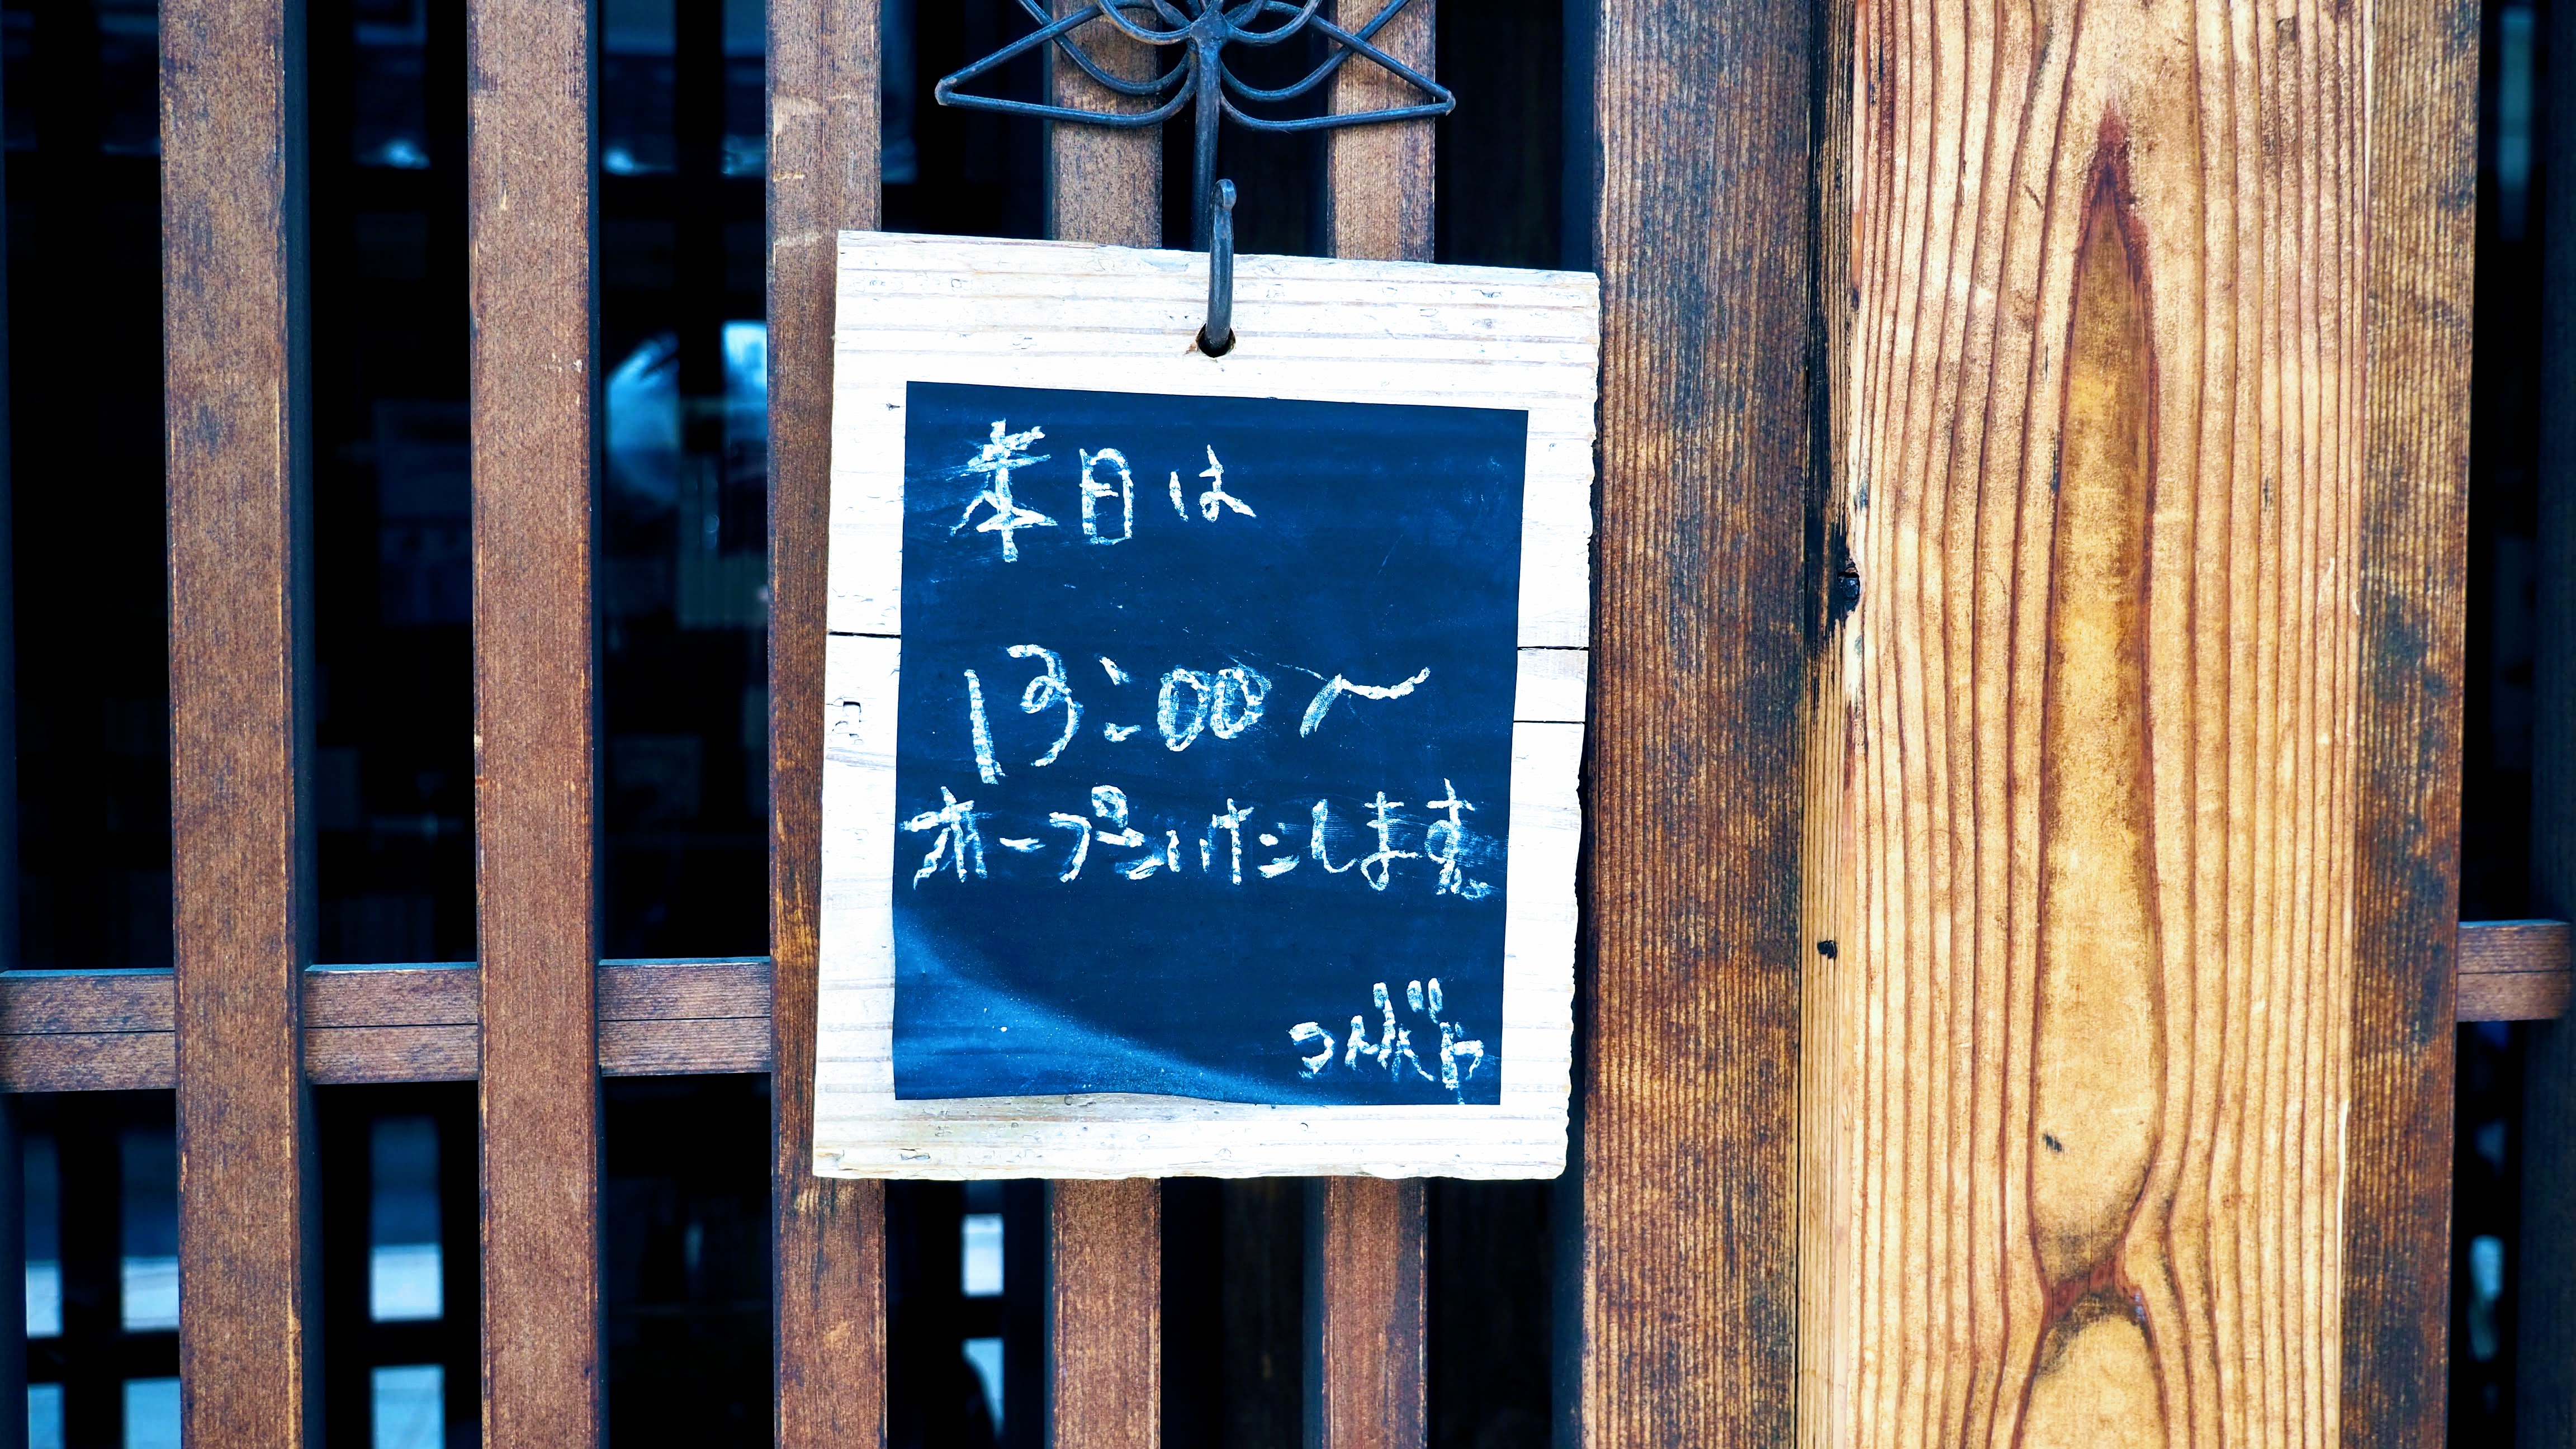 本日は
13:00〜
オープンいたします